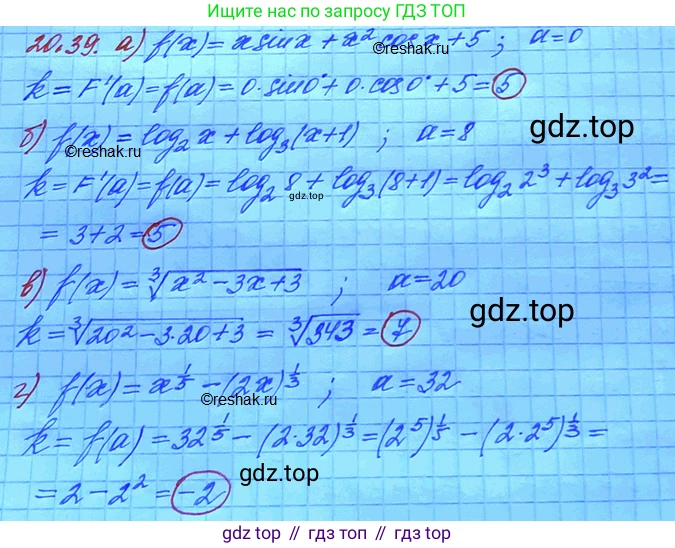 Ищите решение по запросу ГДЗ ТОП
20.39. а) f(x) = x sin x + x² cos x + 5 ; a=0
k = F'(a) = f(a) = 0·sin0° + 0·cos0° + 5 = 5
©reshak.ru
б) f(x) = log₂ x + log₃(x+1) ; a=8
©reshak.ru
гдз.top
k = F'(a) = f(a) = log₂ 8 + log₃(8+1) = log₂ 2³ + log₃ 3² =
гдз.top
= 3+2 = 5
в) f(x) = ∛(x² − 3x + 3) ; a=20
гдз.top
k = ∛(20² − 3·20 + 3) = ∛343 = 7
г) f(x) = x^(1/5) − (2x)^(1/3) ; a=32
©reshak.ru
k = f(a) = 32^(1/5) − (2·32)^(1/3) = (2⁵)^(1/5) − (2·2⁵)^(1/3) =
гдз.top
= 2 − 2² = −2
gdz.top // гдз.топ // гдз.top